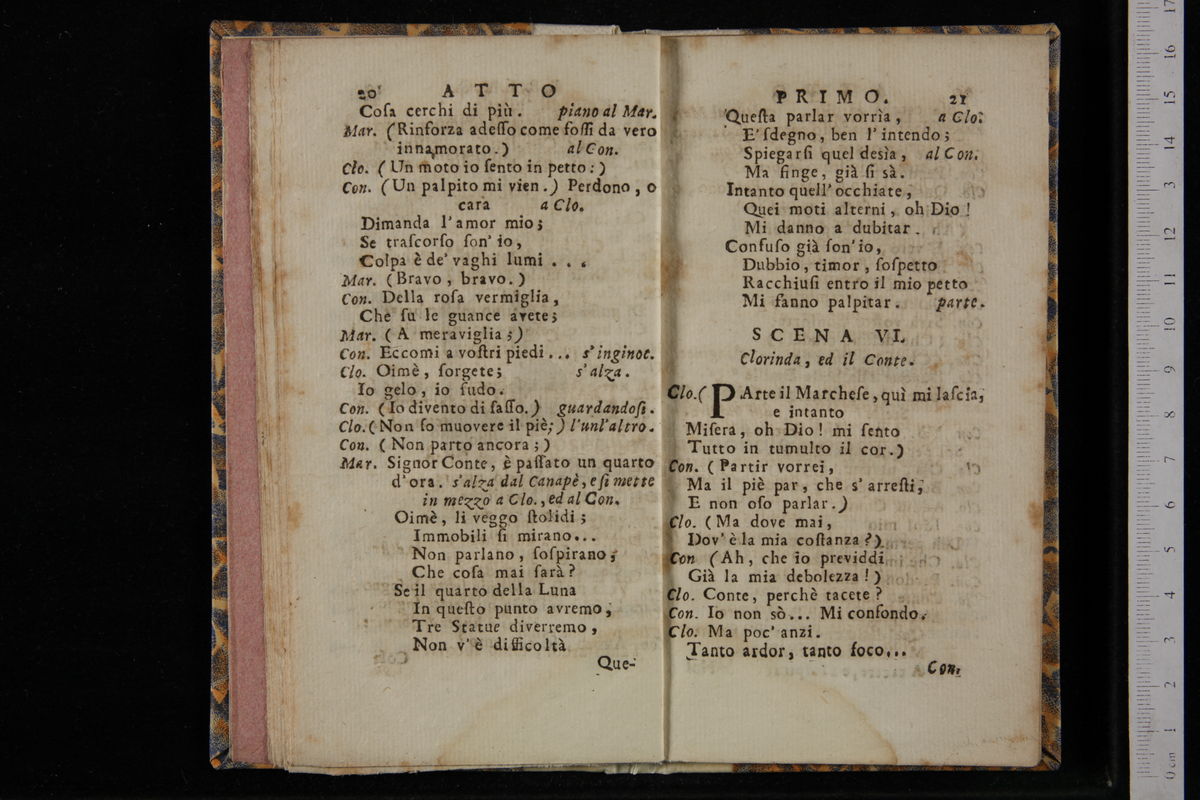 20 ATTO
Coſa cerchi di più. piano al Mar.
Mar. (Rinforza adeſſo come foſſi da vero
innamorato.) al Con.
Clo. (Un moto io ſento in petto:)
Con. (Un palpito mi vien.) Perdono, o
cara a Clo.
Dimanda l'amor mio;
Se traſcorſo ſon' io,
Colpa è de' vaghi lumi . . .
Mar. (Bravo, bravo.)
Con. Della roſa vermiglia,
Che ſu le guance avete;
Mar. (A meraviglia;)
Con. Eccomi a voſtri piedi... s'inginoc.
Clo. Oimè, ſorgete; s'alza.
Io gelo, io ſudo.
Con. (Io divento di ſaſſo.) guardandoſi.
Clo. (Non ſo muovere il piè;) l'unl'altro.
Con. (Non parto ancora;)
Mar. Signor Conte, è paſſato un quarto
d'ora. s'alza dal Canapè, e ſi mette
in mezzo a Clo., ed al Con.
Oimè, li veggo ſtolidi;
Immobili ſi mirano...
Non parlano, ſoſpirano;
Che coſa mai ſarà?
Se il quarto della Luna
In queſto punto avremo,
Tre Statue diverremo,
Non v'è difficoltà
Que-
PRIMO. 21
Queſta parlar vorrìa, a Clo.
E' ſdegno, ben l'intendo;
Spiegarſi quel desìa, al Con.
Ma finge, già ſi sà.
Intanto quell' occhiate,
Quei moti alterni, oh Dio!
Mi danno a dubitar.
Confuſo già ſon' io,
Dubbio, timor, ſoſpetto
Racchiuſi entro il mio petto
Mi fanno palpitar. parte.
SCENA VI.
Clorinda, ed il Conte.
Clo. (PArte il Marcheſe, quì mi laſcia,
e intanto
Miſera, oh Dio! mi ſento
Tutto in tumulto il cor.)
Con. (Partir vorrei,
Ma il piè par, che s'arreſti,
E non oſo parlar.)
Clo. (Ma dove mai,
Dov'è la mia coſtanza?)
Con (Ah, che io previddi
Già la mia debolezza!)
Clo. Conte, perchè tacete?
Con. Io non sò... Mi confondo.
Clo. Ma poc' anzi.
Tanto ardor, tanto foco...
Con.
0 cm 1 2 3 4 5 6 7 8 9 10 11 12 13 14 15 16 17